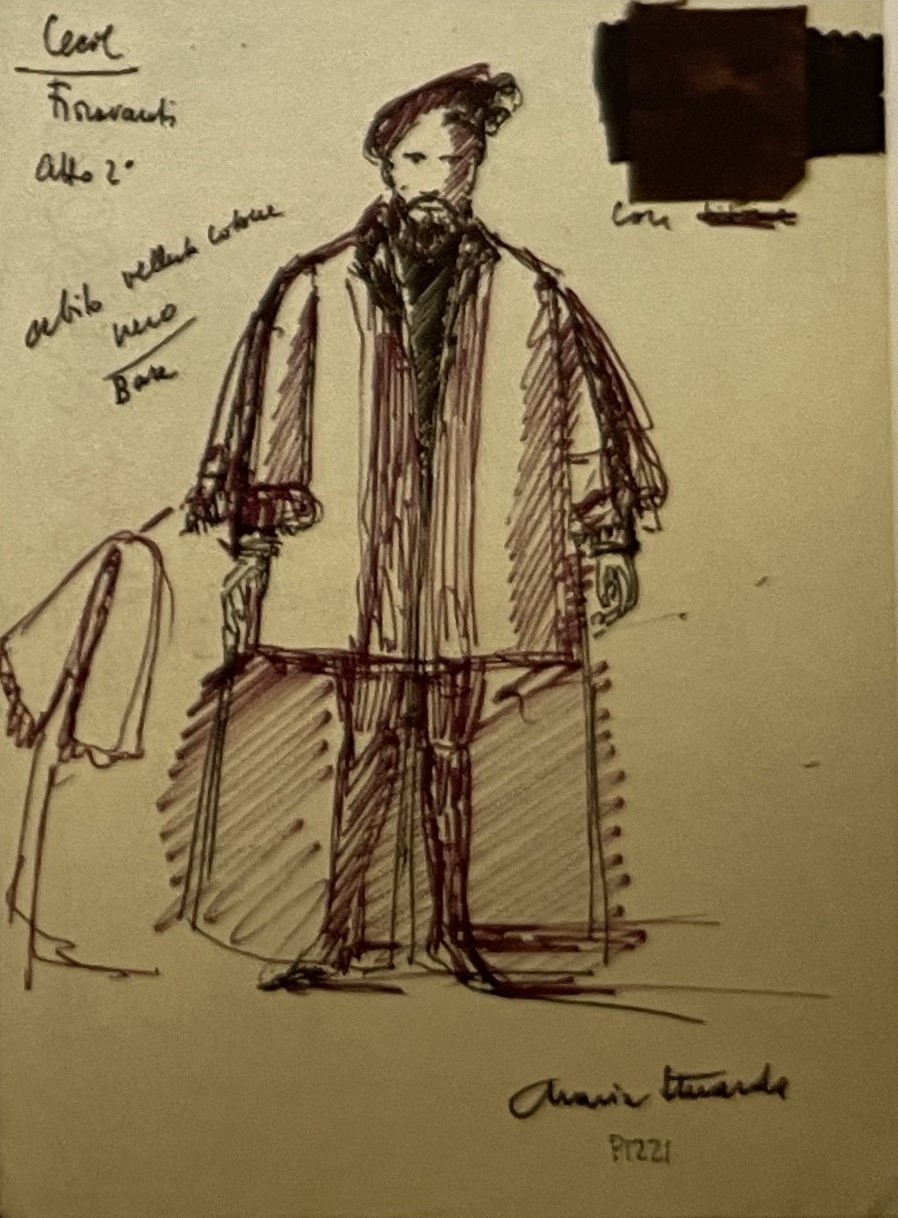 Cecil
Fioravanti
Atto 2°
abito velluto cotone
nero
Base
con
Maria Stuarda
PIZZI